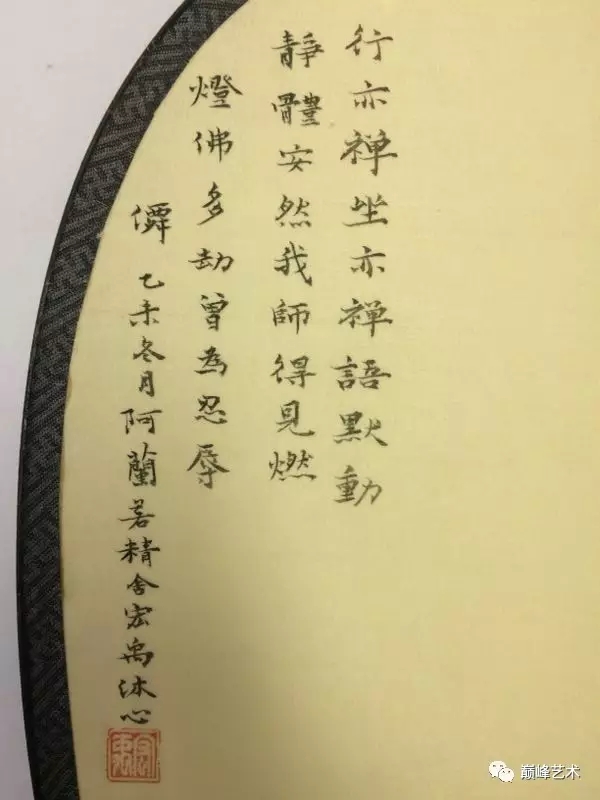 行亦禅坐亦禅語默動
靜體安然我師得見燃
燈佛多劫曾為忍辱
僊 乙未冬月阿蘭若精舍宏禹沐心
巅峰艺术